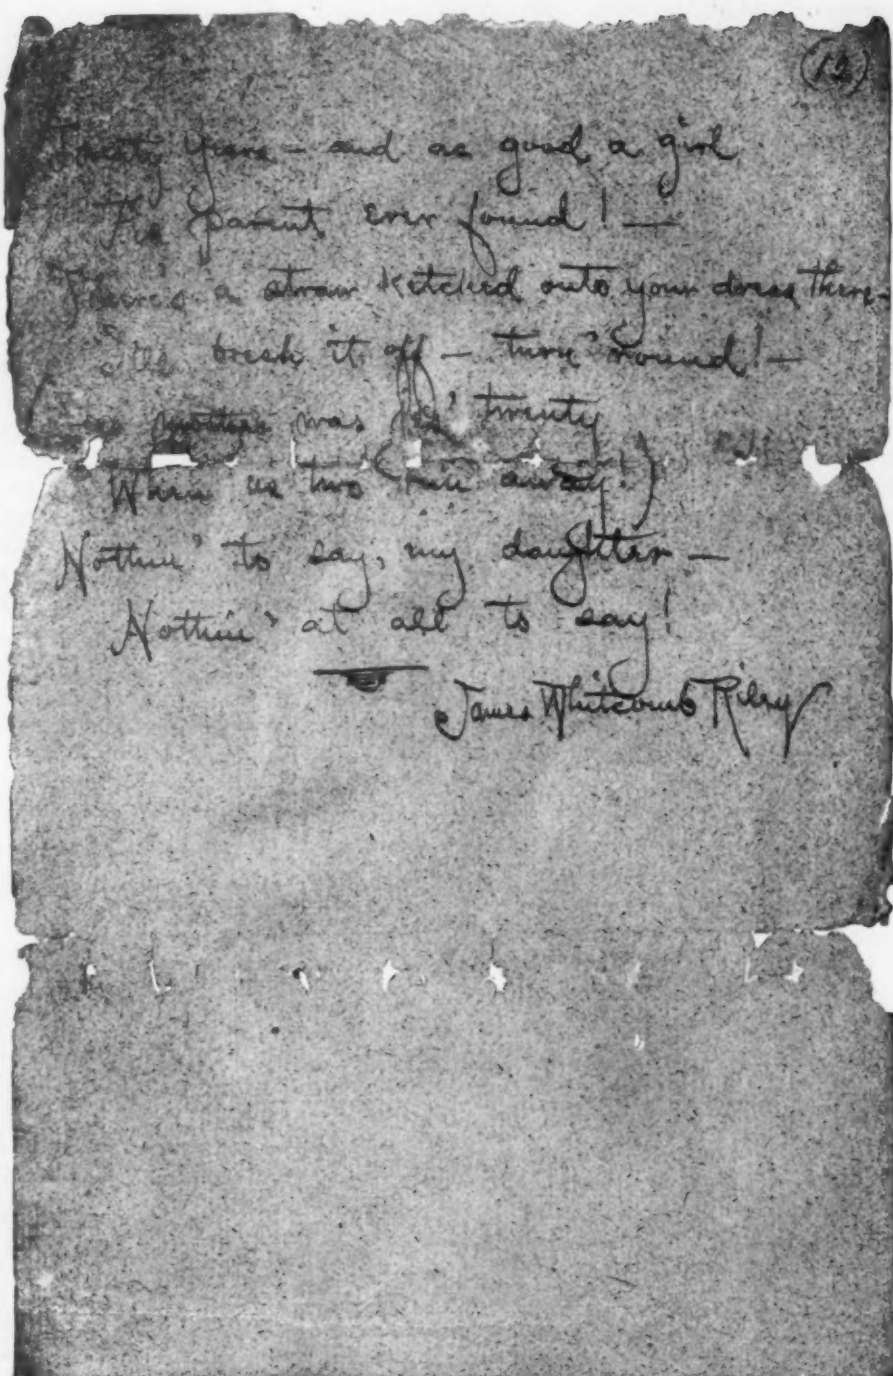 (12)
Twenty years — and as good a girl
parent ever found! —
There's a straw ketched onto your dress there—
I'll break it off — turn 'round! —
mother was jes' twenty
When us two run away!)
Nothin' to say, my daughter —
Nothin' at all to say!
James Whitcomb Riley